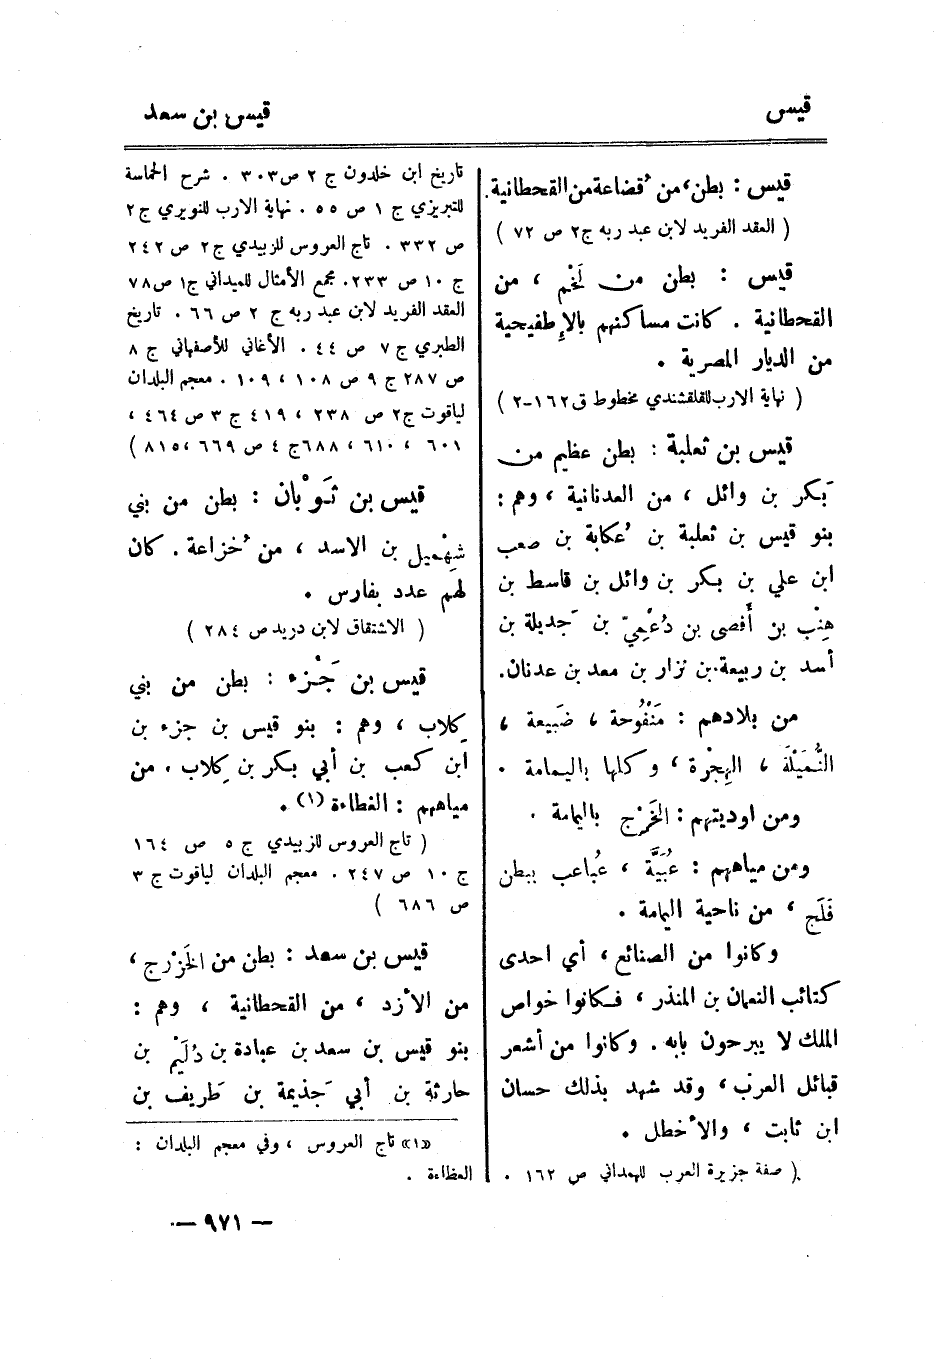 قيس
قيس بن سعد
قيس : بطن من قُضاعة من القحطانية .
( العقد الفريد لابن عبد ربه ج٢ ص ٧٢ )
قيس : بطن من لَخْم ، من
القحطانية . كانت مساكنهم بالإطفيحية
من الديار المصرية .
( نهاية الارب للقلقشندي مخطوط ق١٦٢-٢ )
قيس بن ثعلبة : بطن عظيم من
بَكر بن وائل ، من العدنانية ، وهم :
بنو قيس بن ثعلبة بن عُكابة بن صعب
ابن علي بن بكر بن وائل بن قاسط بن
هِنْب بن أَفصى بن دُعْمِيّ بن جَديلة بن
أسد بن ربيعة بن نزار بن معد بن عدنان.
من بلادهم : مَنْفُوحة ، ضَبيعة ،
النُّمَيْلَة ، الهِجْرة ، وكلها باليمامة .
ومن اوديتهم : الخَرْج باليمامة .
ومن مياههم : عُبَيَّة ، عُباعب ببطن
فَلَج ، من ناحية اليمامة .
وكانوا من الصنائع ، أي احدى
كتائب النعمان بن المنذر ، فكانوا خواص
الملك لا يبرحون بابه . وكانوا من أشعر
قبائل العرب ، وقد شهد بذلك حسان
ابن ثابت ، والأخطل .
( صفة جزيرة العرب للهمداني ص ١٦٢ .
تاريخ ابن خلدون ج ٢ ص ٣٠٣ . شرح الحماسة
للتبريزي ج ١ ص ٥٥ . نهاية الارب للنويري ج٢
ص ٣٣٢ . تاج العروس للزبيدي ج٢ ص ٢٤٢
ج ١٠ ص ٢٣٣. مجمع الأمثال للميداني ج١ ص٧٨
العقد الفريد لابن عبد ربه ج ٢ ص ٦٦ . تاريخ
الطبري ج ٧ ص ٤٤ . الأغاني للأصفهاني ج ٨
ص ٢٨٧ ج ٩ ص ١٠٨ ، ١٠٩ . معجم البلدان
لياقوت ج٢ ص ٢٣٨ ، ٤١٩ ج ٣ ص ٤٦٤ ،
٦٠١ ، ٦١٠ ، ٦٨٨ج ٤ ص ٦٦٩ ، ٨١٥ )
قيس بن ثَوْبان : بطن من بني
شِهْميل بن الاسد ، من خُزاعة . كان
لهم عدد بفارس .
( الاشتقاق لابن دريد ص ٢٨٤ )
قيس بن جَزْء : بطن من بني
كِلاب ، وهم : بنو قيس بن جزء بن
ابن كعب بن أبي بكر بن كلاب . من
مياههم : الغطاءة (١) .
( تاج العروس للزبيدي ج ٥ ص ١٦٤
ج ١٠ ص ٢٤٧ . معجم البلدان لياقوت ج ٣
ص ٦٨٦ )
قيس بن سعد : بطن من الخَزْرج ،
من الأزد ، من القحطانية ، وهم :
بنو قيس بن سعد بن عبادة بن دُلَيْم بن
حارثة بن أبي حَذيمة بن طَريف بن
«١» تاج العروس ، وفي معجم البلدان :
العظاءة .
— ٩٧١ —